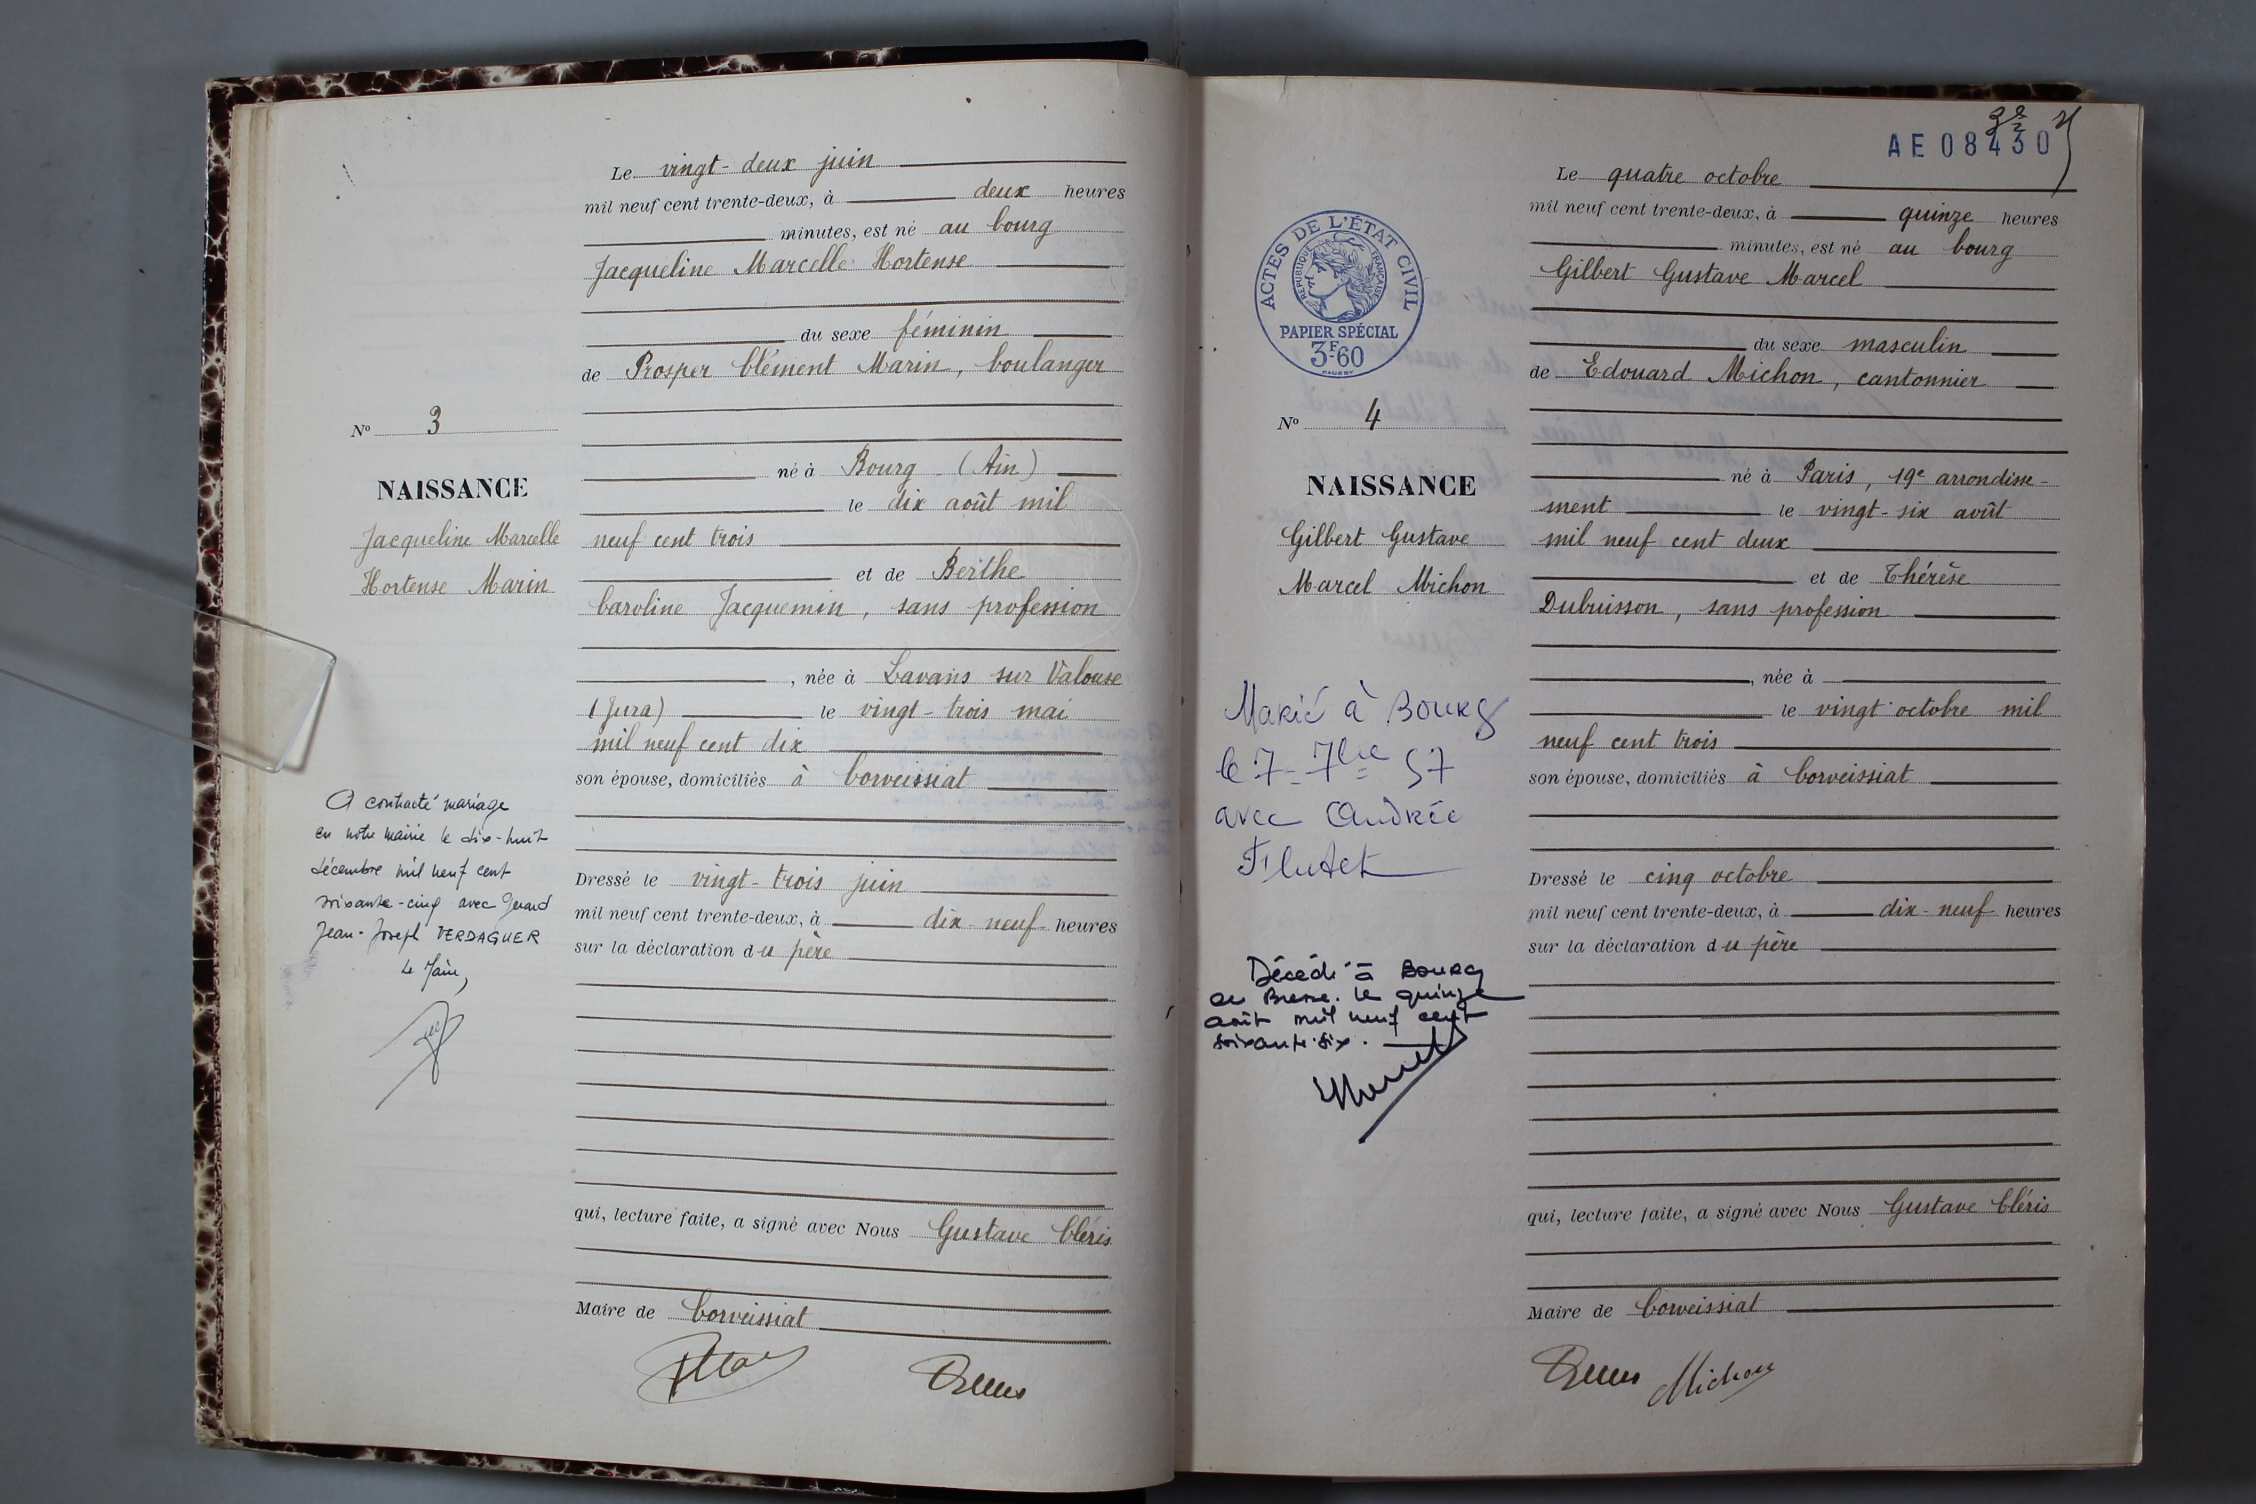 Le vingt-deux juin
mil neuf cent trente-deux, à deux heures
minutes, est né au bourg
Jacqueline Marcelle Hortense
du sexe féminin
de Prosper Clément Marin, boulanger
né à Bourg (Ain)
le dix août mil
neuf cent trois
et de Berthe
Caroline Jacquemin, sans profession
, née à Lavans sur Valouse
(Jura) le vingt-trois mai
mil neuf cent dix
son épouse, domiciliés à Corveissiat
Dressé le vingt-trois juin
mil neuf cent trente-deux, à dix-neuf heures
sur la déclaration du père
qui, lecture faite, a signé avec Nous Gustave Cléris
Maire de Corveissiat
No 3
NAISSANCE
Jacqueline Marcelle
Hortense Marin
A contracté mariage
en notre mairie le dix-huit
décembre mil neuf cent
soixante-cinq avec Gérard
Jean-Joseph VERDAGUER
Le Maire,
AE 08430
Le quatre octobre
mil neuf cent trente-deux, à quinze heures
minutes, est né au bourg
Gilbert Gustave Marcel
du sexe masculin
de Edouard Michon, cantonnier
né à Paris, 19e arrondisse-
ment le vingt-six août
mil neuf cent deux
et de Thérèse
Dubuisson, sans profession
, née à
le vingt octobre mil
neuf cent trois
son épouse, domiciliés à Corveissiat
Dressé le cinq octobre
mil neuf cent trente-deux, à dix-neuf heures
sur la déclaration du père
qui, lecture faite, a signé avec Nous Gustave Cléris
Maire de Corveissiat
Michon
ACTES DE L'ÉTAT CIVIL
RÉPUBLIQUE FRANÇAISE
PAPIER SPÉCIAL
3F.60
No 4
NAISSANCE
Gilbert Gustave
Marcel Michon
Marié à Bourg
le 7-7bre 57
avec Andrée
Flutet
Décédé à Bourg
en Bresse le quinze
août mil neuf cent
soixante-six.